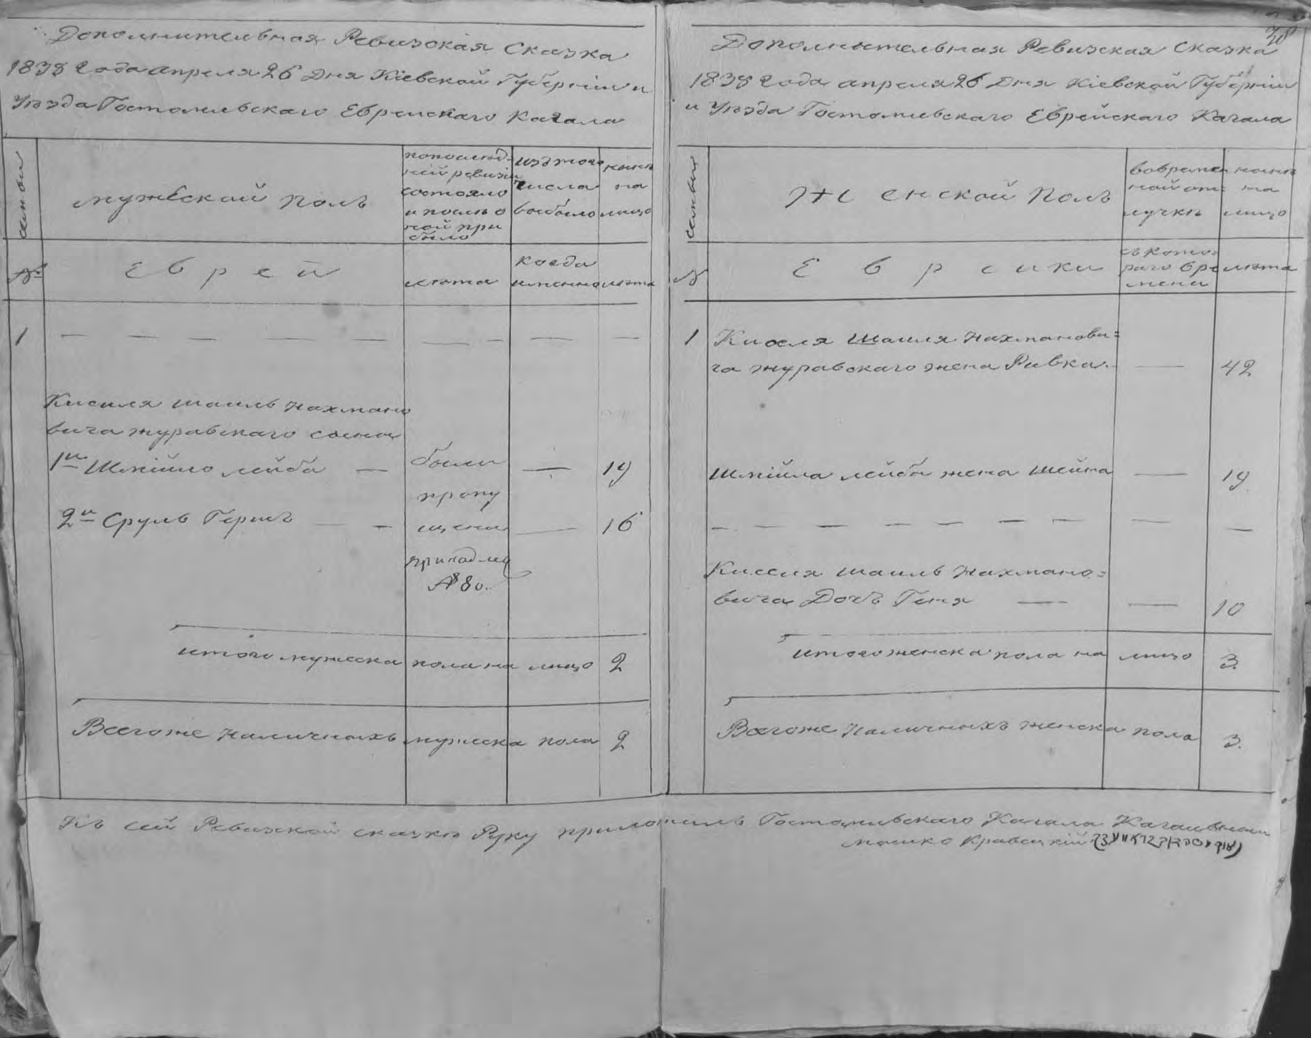 Дополнительная Ревизская Сказка
1838 Года апреля 26 Дня Кіевской Губерніи и
Уезда Гостомельскаго Еврейскаго Кагала
семьи
мужеской полъ
по послед-
ней ревизіи
состояло
и после о
ной при
было
изъ того
числа
выбыло
ныне
на
лицо
№
Еврей
лета
когда
именно
лета
1 — — — — — — —
Киселя Шаиль Нахмано
вича журавскаго сына
1й Шмійло лейба — были — 19
пропу
2й Сруль Гершъ — — щены — 16
итого мужеска пола на лицо 2
Всегоже наличныхъ мужеска пола 2
38
Дополнительная Ревизская Сказка
1838 Года апреля 26 Дня Кіевской Губерніи
и Уезда Гостомельскаго Еврейскаго Кагала
семьи
Женской Полъ
во време
ной от
лучке
ныне
на
лицо
№
Еврейки
съ кото
раго вре
мени
лета
1 Киселя Шаиля Нахманови=
ча журавскаго жена Ривка — 42
Шмійла лейбы жена Шейна — 19
— — — — — — — —
Киселя Шаиль Нахмано=
вича Дочь Геня — — 10
итого женска пола на лицо 3.
Всегоже Наличныхъ женска пола 3.
Къ сей Ревизской сказке Руку приложилъ Гостомельскаго Кагала Кагальный
мошко Кравецкій